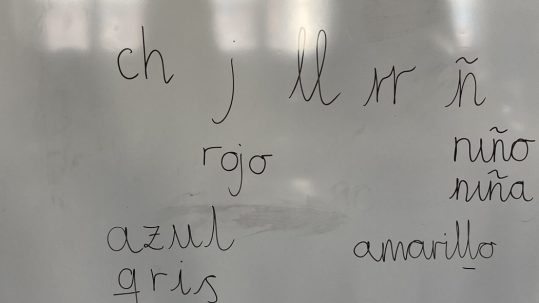 ch j ll rr ñ
rojo
niño
niña
azul
amarillo
gris